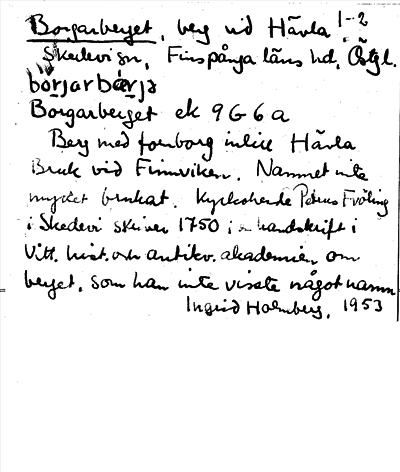 Borgarberget, berg vid Hävla 1-2
Skedevi sn, Finspånga läns hd, Östgl.
börjarbärjə
Borgarberget ek 9G6a
Berg med fornborg invid Hävla
Bruk vid Finnviken. Namnet inte
mycket brukat. Kyrkoherde Petrus Fröling
i Skedevi skriver 1750 i en handskrift i
Vitt. hist. och antikv. akademien om
berget, som han inte visste något namn
Ingrid Holmberg, 1953